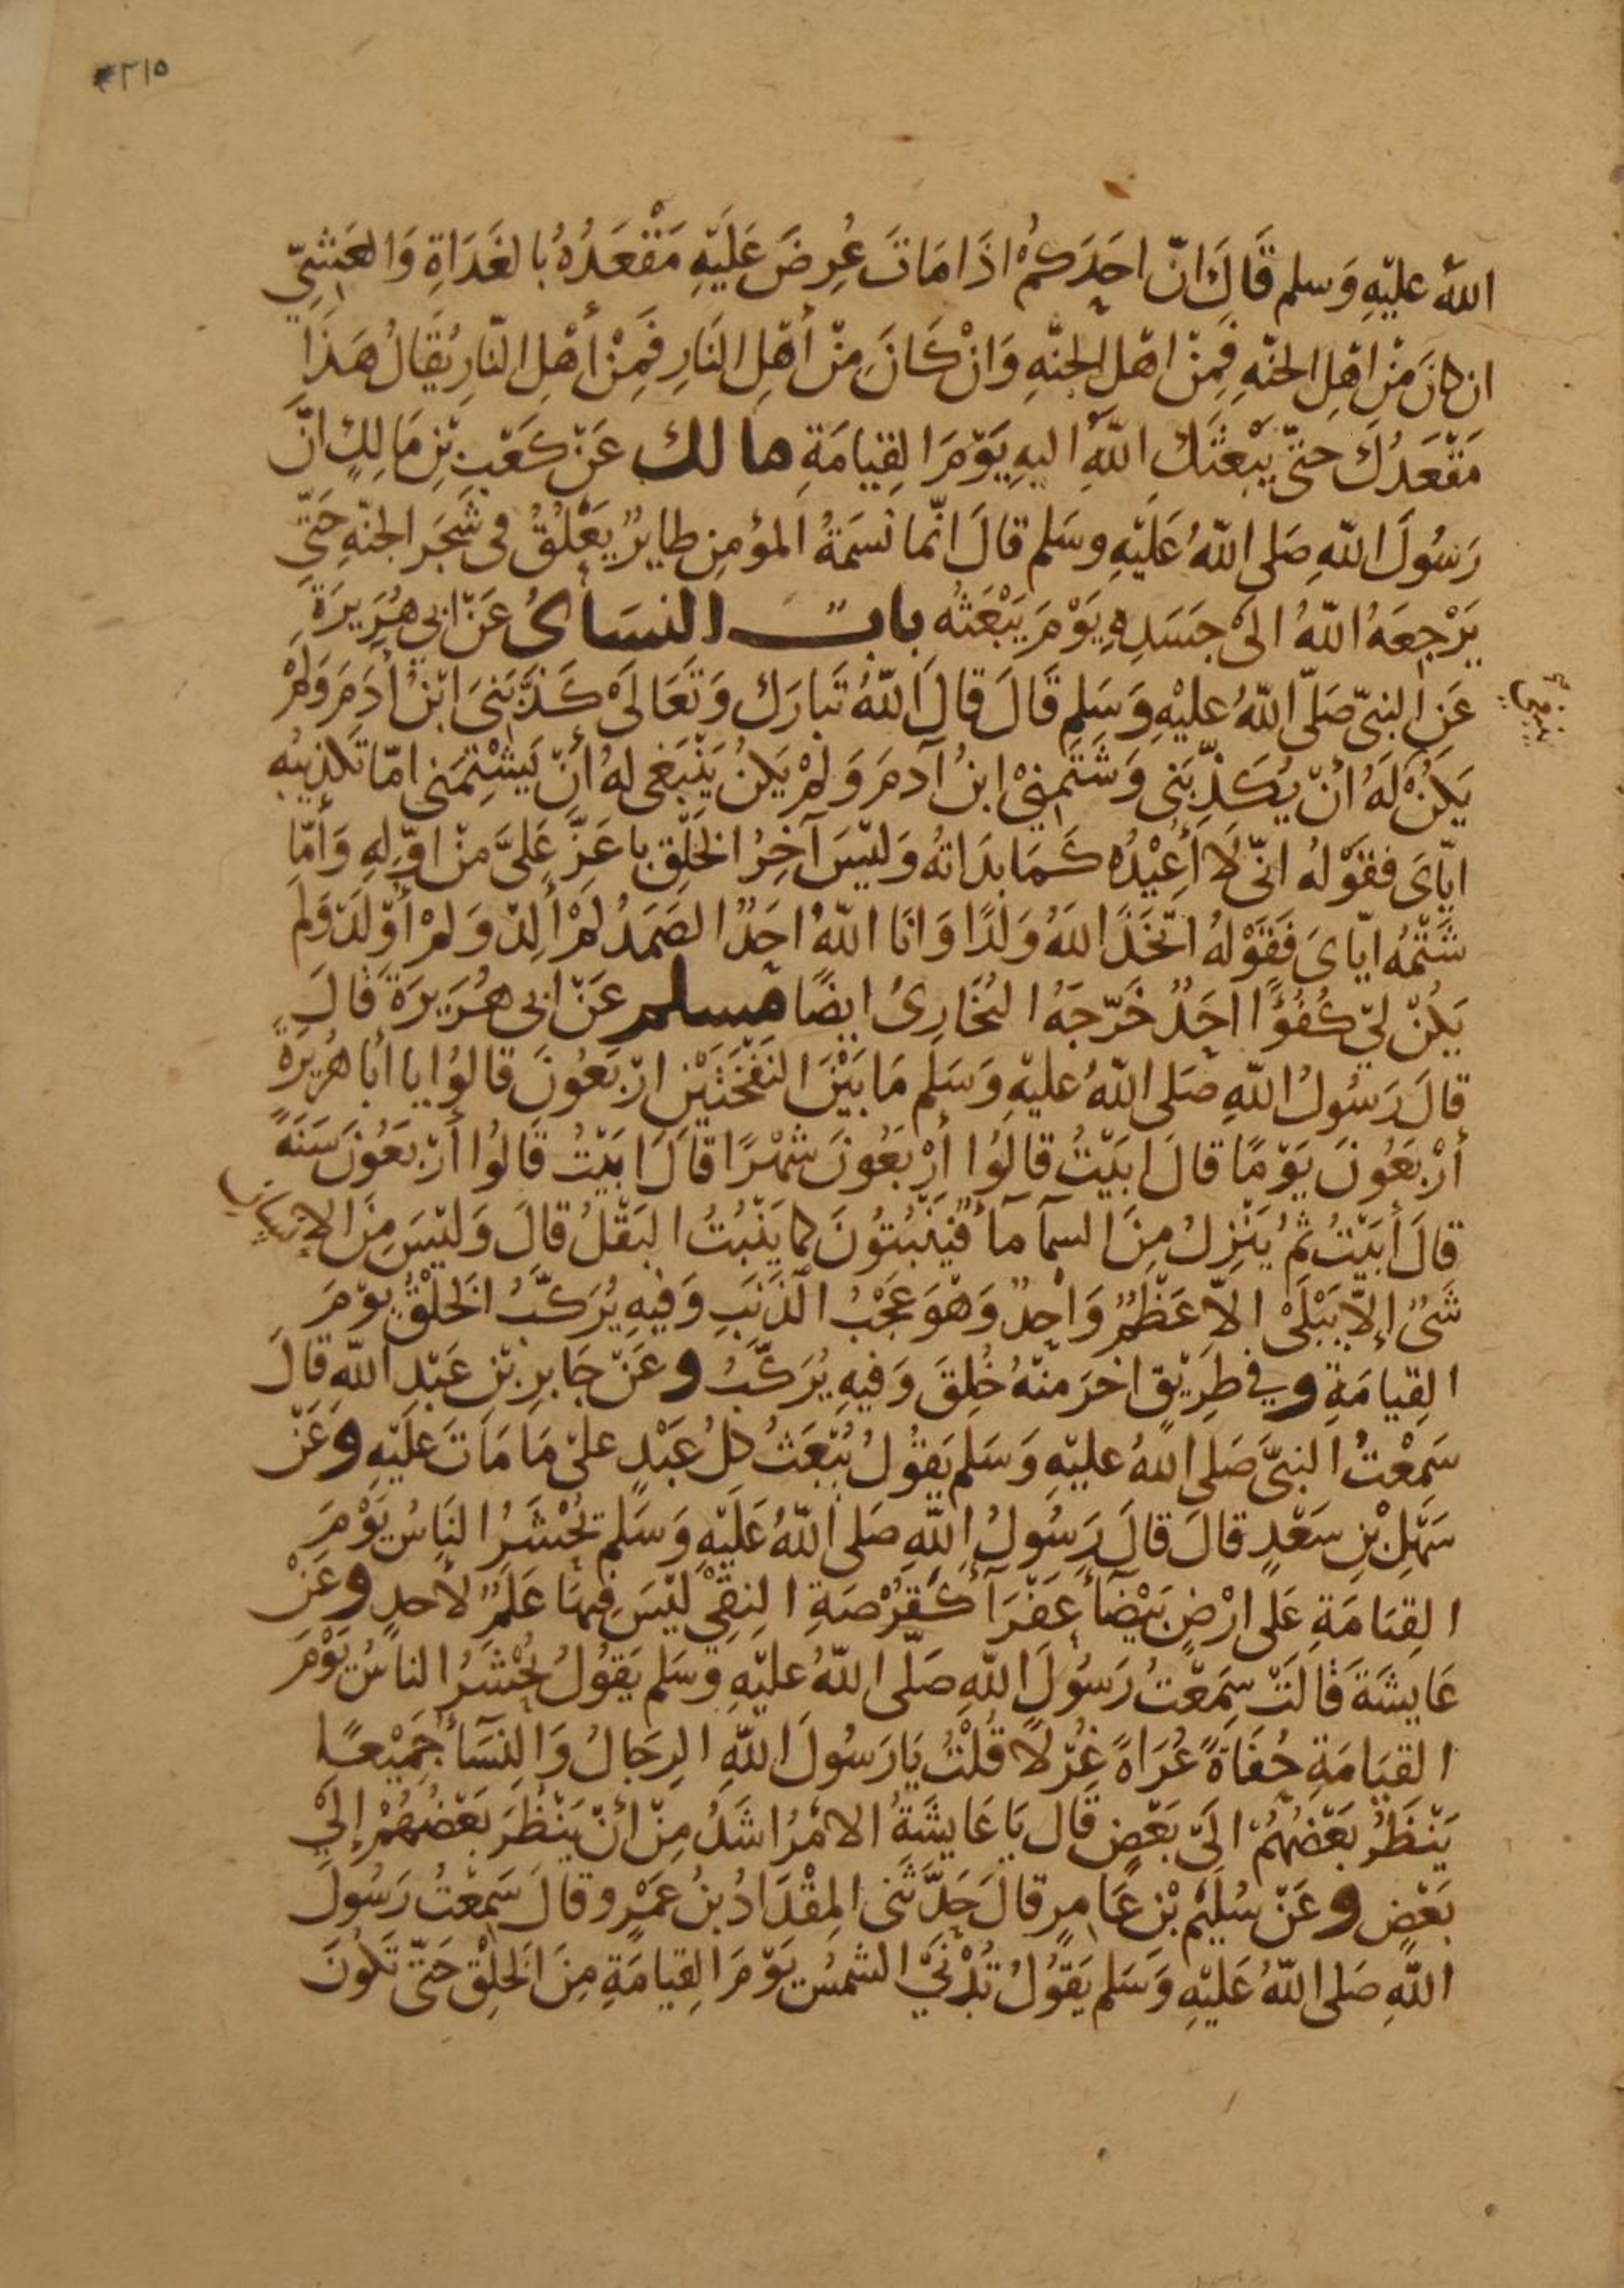 ٣١٥
الله عليه وسلم قال ان احدكم اذا مات عرض عليه مقعده بالغداة والعشي
ان كان من اهل الجنه فمن اهل الجنه وان كان من أهل النار فمن أهل النار يقال هذا
مقعدك حتى يبعثك الله اليه يوم القيامة مالك عن كعب بن مالك ان
رسول الله صلى الله عليه وسلم قال انما نسمة المؤمن طاير يعلق في شجر الجنه حتى
يرجعه الله الى جسده يوم يبعثه باب النساى عن ابى هريرة
عن النبى صلى الله عليه وسلم قال قال الله تبارك وتعالى كذبنى ابن أدم ولم
ينبغى
يكن له أن يكذبنى وشتمنى ابن آدم ولم يكن ينبغى له أن يشتمنى اما تكذيبه
اياى فقوله انى لا أعيده كما بداته وليس آخر الخلق باعز على من اوله وأما
شتمه اياى فقوله اتخذ الله ولدا وانا الله احد الصمد لم ألد ولم أولد ولم
يكن لي كفؤا احد خرجه البخارى ايضا مسلم عن ابى هريرة قال
قال رسول الله صلى الله عليه وسلم ما بين النفختين اربعون قالوا يا أبا هريرة
أربعون يوما قال ابيت قالوا أربعون شهرا قال ابيت قالوا أربعون سنة
قال أبيت ثم ينزل من السمآ مآ فينبتون كما ينبت البقل قال وليس من الإنسان
شئ إلا يبلى الا عظم واحد وهو عجب الذنب وفيه يركب الخلق يوم
القيامة وفي طريق اخر منه خلق وفيه يركب وعن جابر بن عبد الله قال
سمعت النبى صلى الله عليه وسلم يقول يبعث كل عبد على ما مات عليه وعن
سهل بن سعد قال قال رسول الله صلى الله عليه وسلم تحشر الناس يوم
القيامة على ارض بيضآ عفرآ كقرصة النقي ليس فيها علم لأحد وعن
عايشة قالت سمعت رسول الله صلى الله عليه وسلم يقول يحشر الناس يوم
القيامة حفاة عراة غرلا قلت يا رسول الله الرجال والنسآ جميعا
ينظر بعضهم الى بعض قال يا عايشة الامر اشد من أن ينظر بعضهم إلي
بعض وعن سليم بن عامر قال حدثنى المقداد بن عمرو قال سمعت رسول
الله صلى الله عليه وسلم يقول تدني الشمس يوم القيامة من الخلق حتى تكون